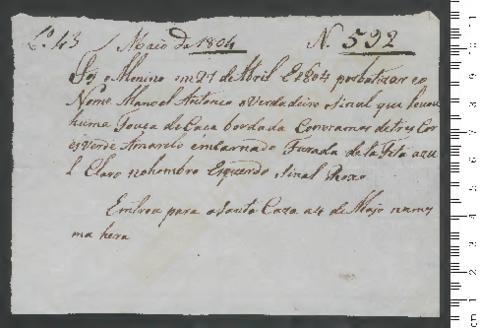 Lo. 43 Maio de 1804 N. 592
o Menino em 27 de Abril de 1804 por batizar eo
Nome Manoel Antonio o Verdadeiro Sinal que levou
huma Touca de Caca bordada Com ramos de tres Cor
es Verde Amarelo em carnado Furada de la Fita azu
l Claro no hombro Esquerdo Sinal Roxo
Emtrou para a Santa Caza a 4 de Maio na mes
ma hera
cm 1 2 3 4 5 6 7 8 9 10 11